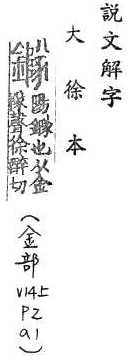 說文解字
大徐本
鐆 陽鐆也从金
隊聲徐醉切
(金部 V14上 P2 a1)